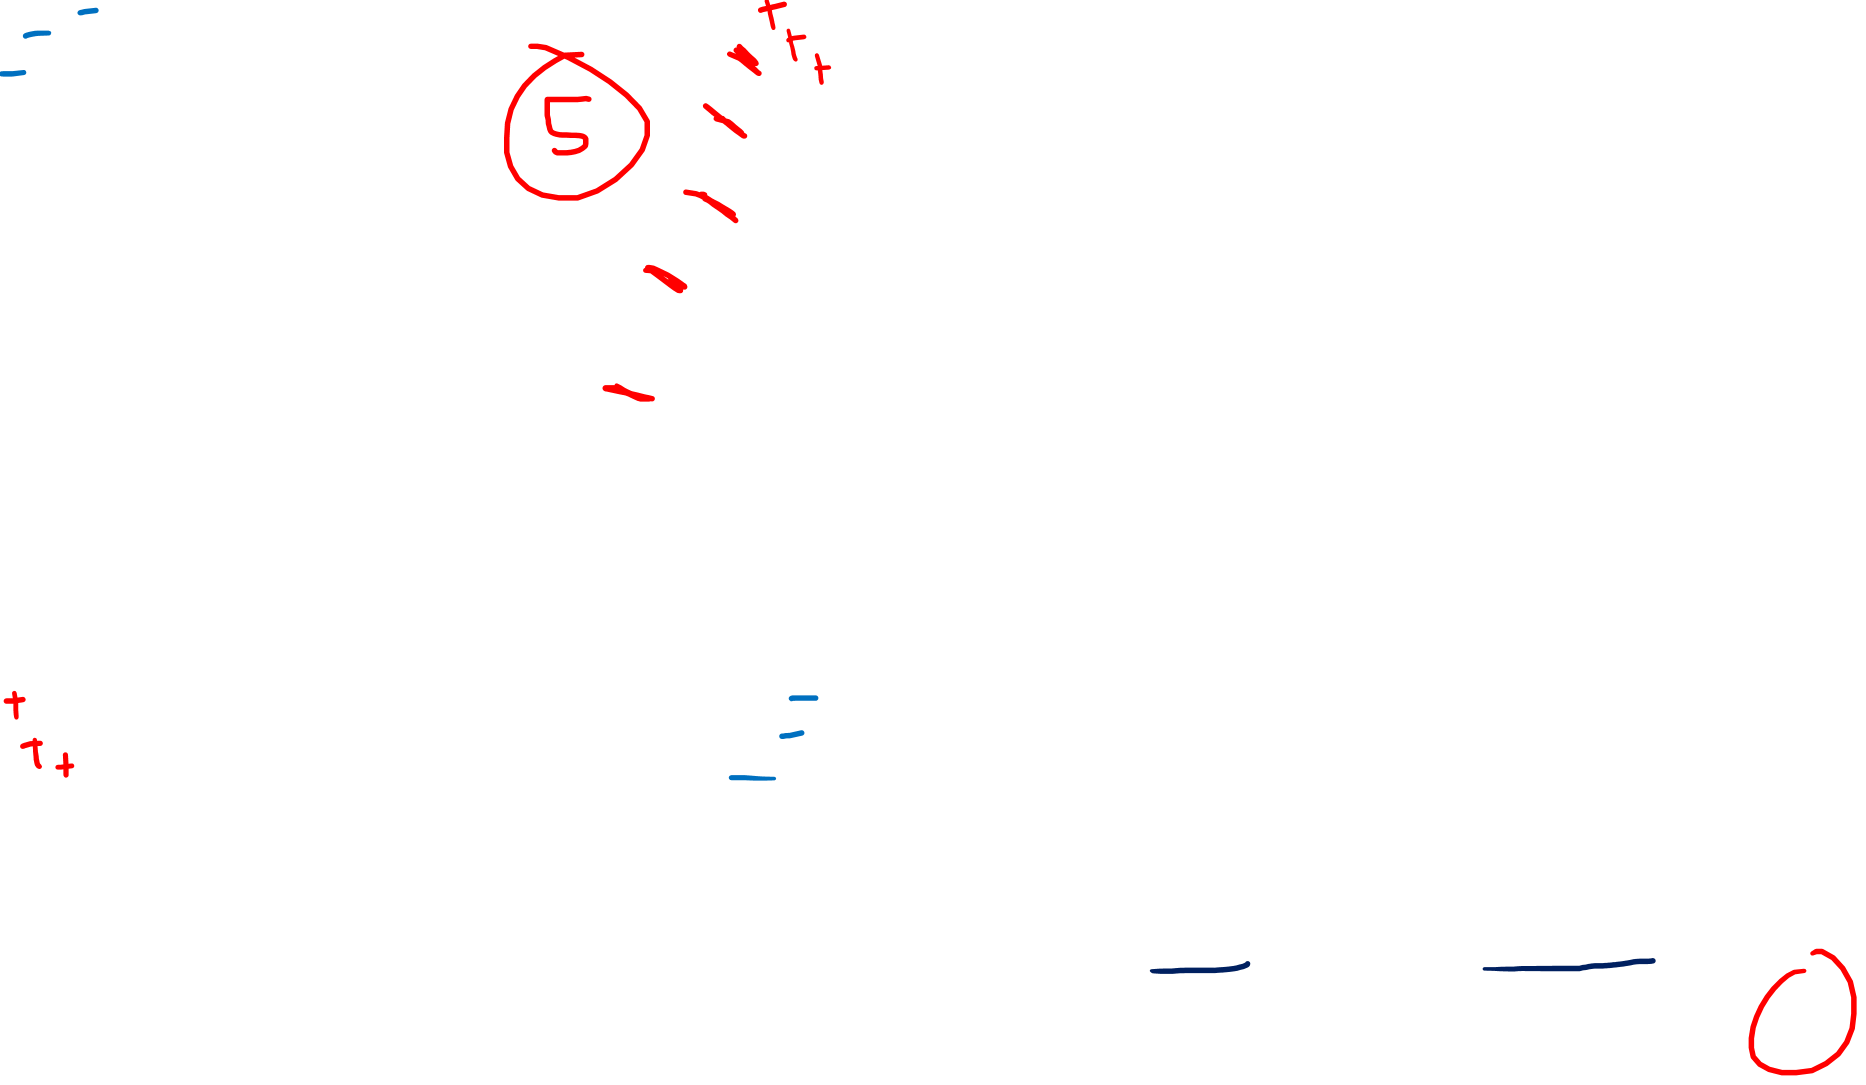 - + + +
-
-
5
+ -
+ + -
-